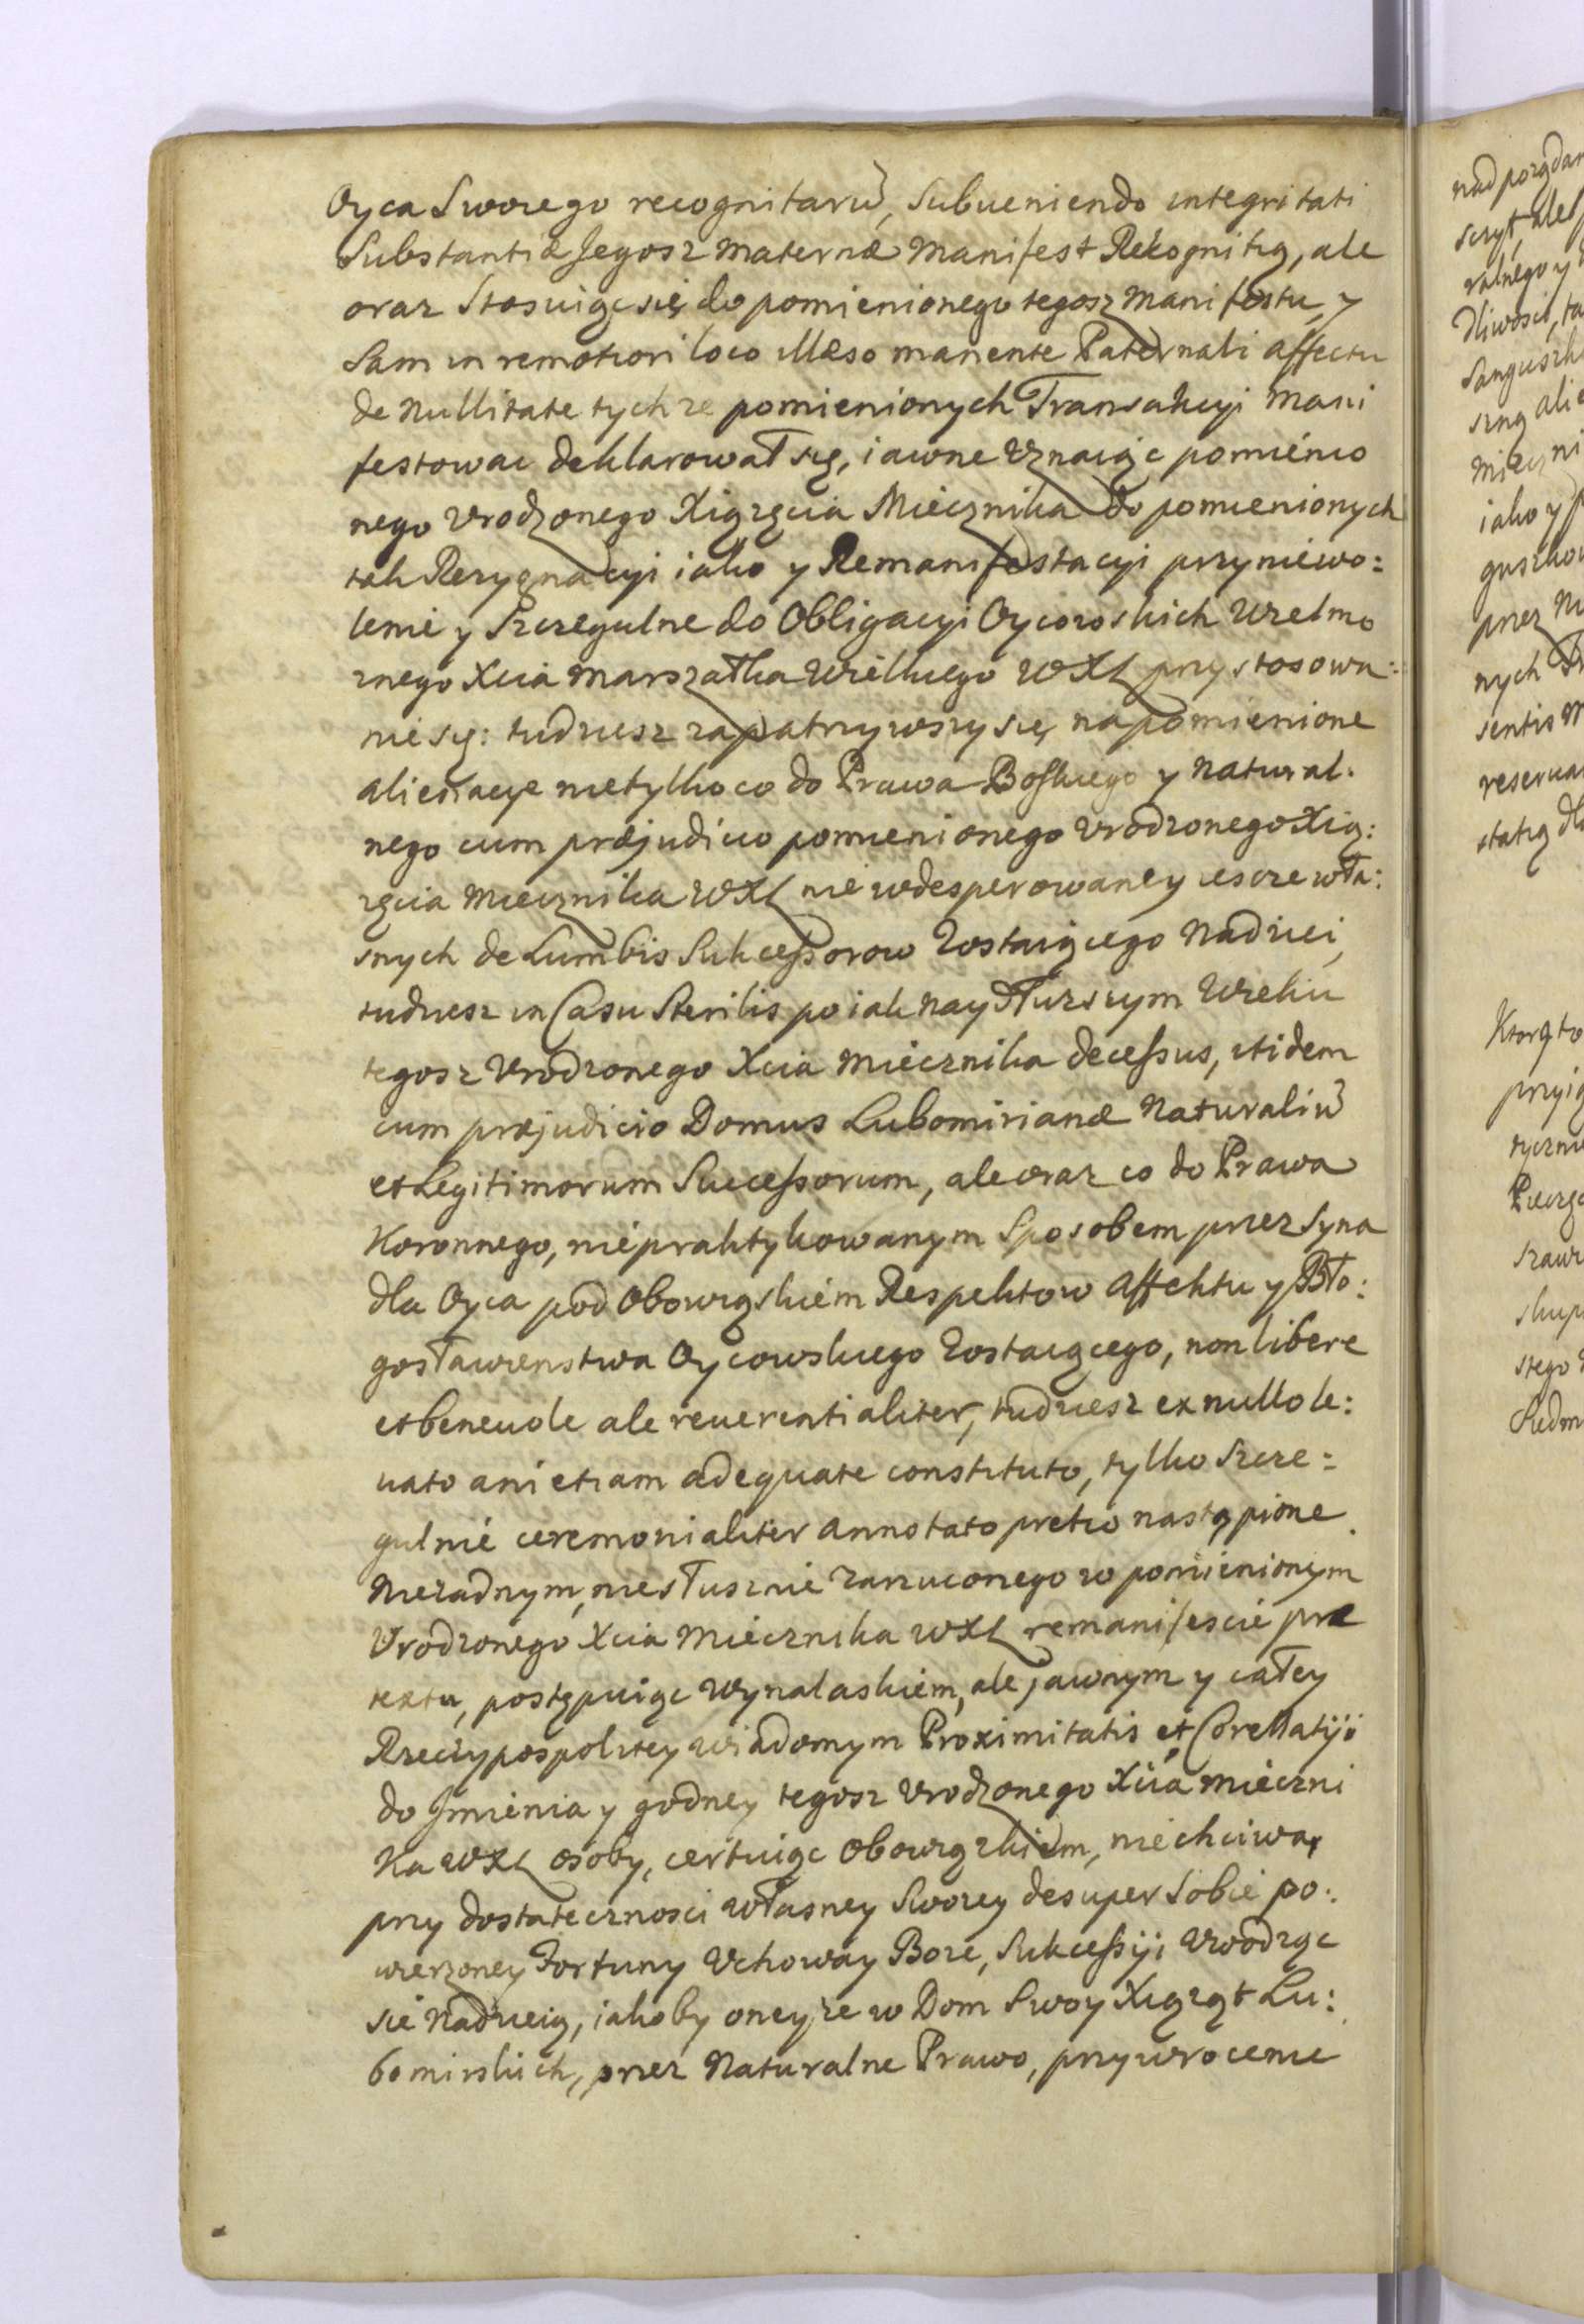 Oyca Swoiego recognitarū, Subueniendo integritati
Substantiæ Jegosz Maternæ Manifest Rekognitią, ale
oraz Stosuiąc się do pomienionego tegosz Manifestu, y
Sam in remotiori loco illæso manente Paternali affectu
de Nullitate tychze pomienionych Transakcyi Mani
festowac deklarował się, iawne Uznaiąc pomienio
nego Urodzonego Xiązęcia Miecznika do pomienionych
tak Rezygnacyi iako y Remanifestacyi przyniewo:
lenie y Szczegulne do Obligacyi Oycowskich Wielmo
znego Xcia Marszałka Wielkiego WXL przystosowa:
nie się: tudziesz zapatrzywszy się na pomienione
alienacye nietylko co do Prawa Boskiego y Natural:
nego cum præjudicio pomienionego Urodzonego Xią:
zęcia Miecznika WXL nie wdesperowaney iescze wła:
snych de Lumbis Sukcessorow Zostaiącego Nadziei,
tudziesz in Casu Sterilis po iak Naydłuzszym Wieku
tegosz Urodzonego Xcia Miecznika decessus, itidem
cum præjudicio Domus Lubomirianæ Naturaliū
et Legitimorum Successorum, ale oraz co do Prawa
Koronnego, niepraktykowanym Sposobem przez Syna
dla Oyca pod Obowiąskiem Respektow Affektu y Bło:
gosławienstwa Oycowskiego Zostaiącego, non libere
et beneuole ale reuerentialiter, tudziesz ex nullo le:
uato ani etiam adequate constituto, tylko Szcze:
gulnie ceremonialiter annotato pretio nastąpione.
Niezadnym, niesłusznie Zarzuconego w pomienionym
Urodzonego Xcia Miecznika WXL remanifescie præ
textu, postępuiąc Wynalaskiem, ale jawnym y całey
Rzeczypospolitey wiadomym Proximitatis et Correllatiji
do Jmienia y godney tegosz Urodzonego Xcia Mieczni
Ka WXL osoby, certuiąc Obowiązkiem, niechciwą
przy dostatecznosci własney Swoiey desuper Sobie po:
wierzoney Fortuny Uchoway Boze, Sukcessyi Uwodząc
sie Nadzieią, iakoby oneyze w Dom Swoy Xiąząt Lu:
bomirskich, przez Naturalne Prawo, przywrocenie